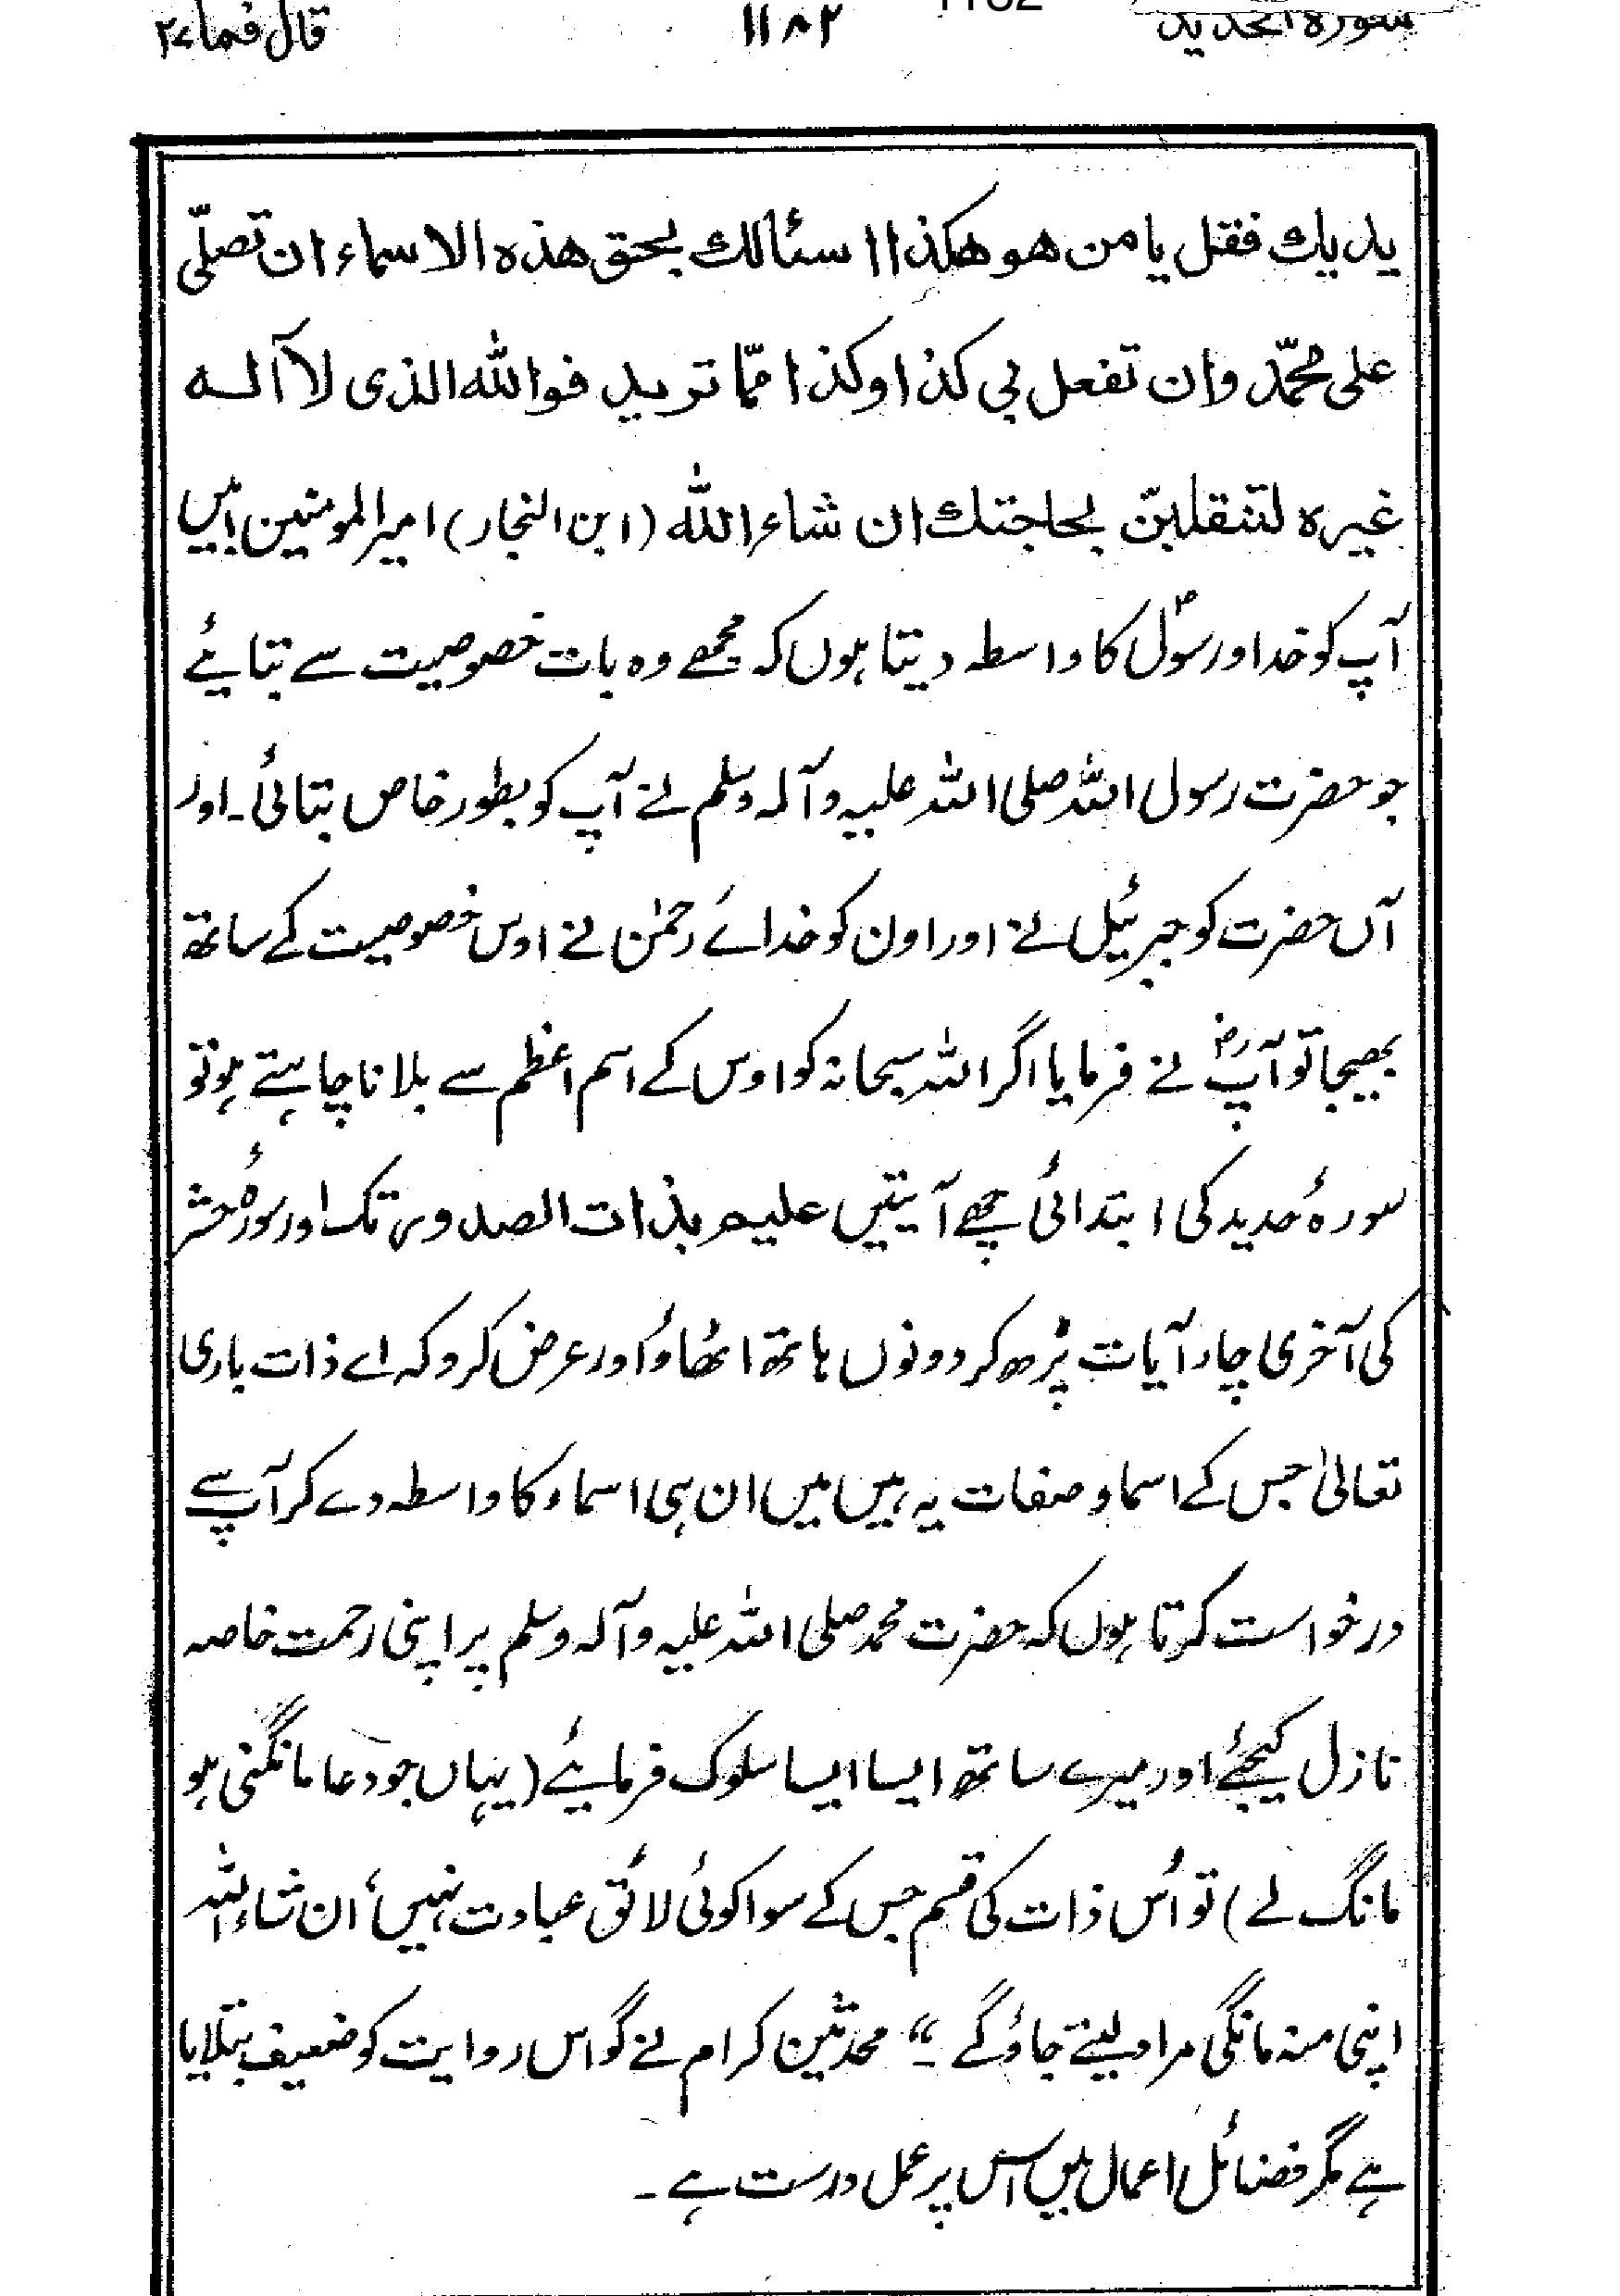 سورة الحدید ۱۱۸۲ قال فما ۲۷
یدیك فقل یا من هو هكذا اسئالك بحق هذه الاسماء ان تصلّی
علی محمّد وان تفعل بی كذا وكذا ممّا ترید فوالله الذی لاآله
غیره لتنقلبنّ بحاجتك ان شاء الله (ابن النجار) امیر المومنین! میں
آپ کو خدا و رسولؐ کا واسطہ دیتا ہوں کہ مجھے وہ بات خصوصیت سے بتایئے
جو حضرت رسول اللہ صلی اللہ علیہ وآلہ وسلم نے آپ کو بطور خاص بتائی۔ اور
آں حضرت کو جبرئیل نے اور اون کو خدائے رحمٰن نے اوس خصوصیت کے ساتھ
بھیجا تو آپؓ نے فرمایا اگر اللہ سبحانہ کو اوس کے اسم اعظم سے بلانا چاہتے ہو تو
سورہُ حدید کی ابتدائی چھے آیتیں علیم بذات الصدور تک اور سورہُ حشر
کی آخری چار آیات پڑھ کر دونوں ہاتھ اٹھاؤ اور عرض کرو کہ اے ذات باری
تعالیٰ جس کے اسما و صفات یہ ہیں میں ان ہی اسماء کا واسطہ دے کر آپ سے
درخواست کرتا ہوں کہ حضرت محمد صلی اللہ علیہ وآلہ وسلم پر اپنی رحمت خاصہ
نازل کیجئے اور میرے ساتھ ایسا ایسا سلوک فرمایئے (یہاں جو دعا مانگنی ہو
مانگ لے) تو اُس ذات کی قسم جس کے سوا کوئی لائق عبادت نہیں، ان شاء اللہ
اپنی منہ مانگی مراد لیتے جاؤ گے ۔“ محدثین کرام نے گو اس روایت کو ضعیف بتلایا
ہے مگر فضائل اعمال میں اس پر عمل درست ہے ۔